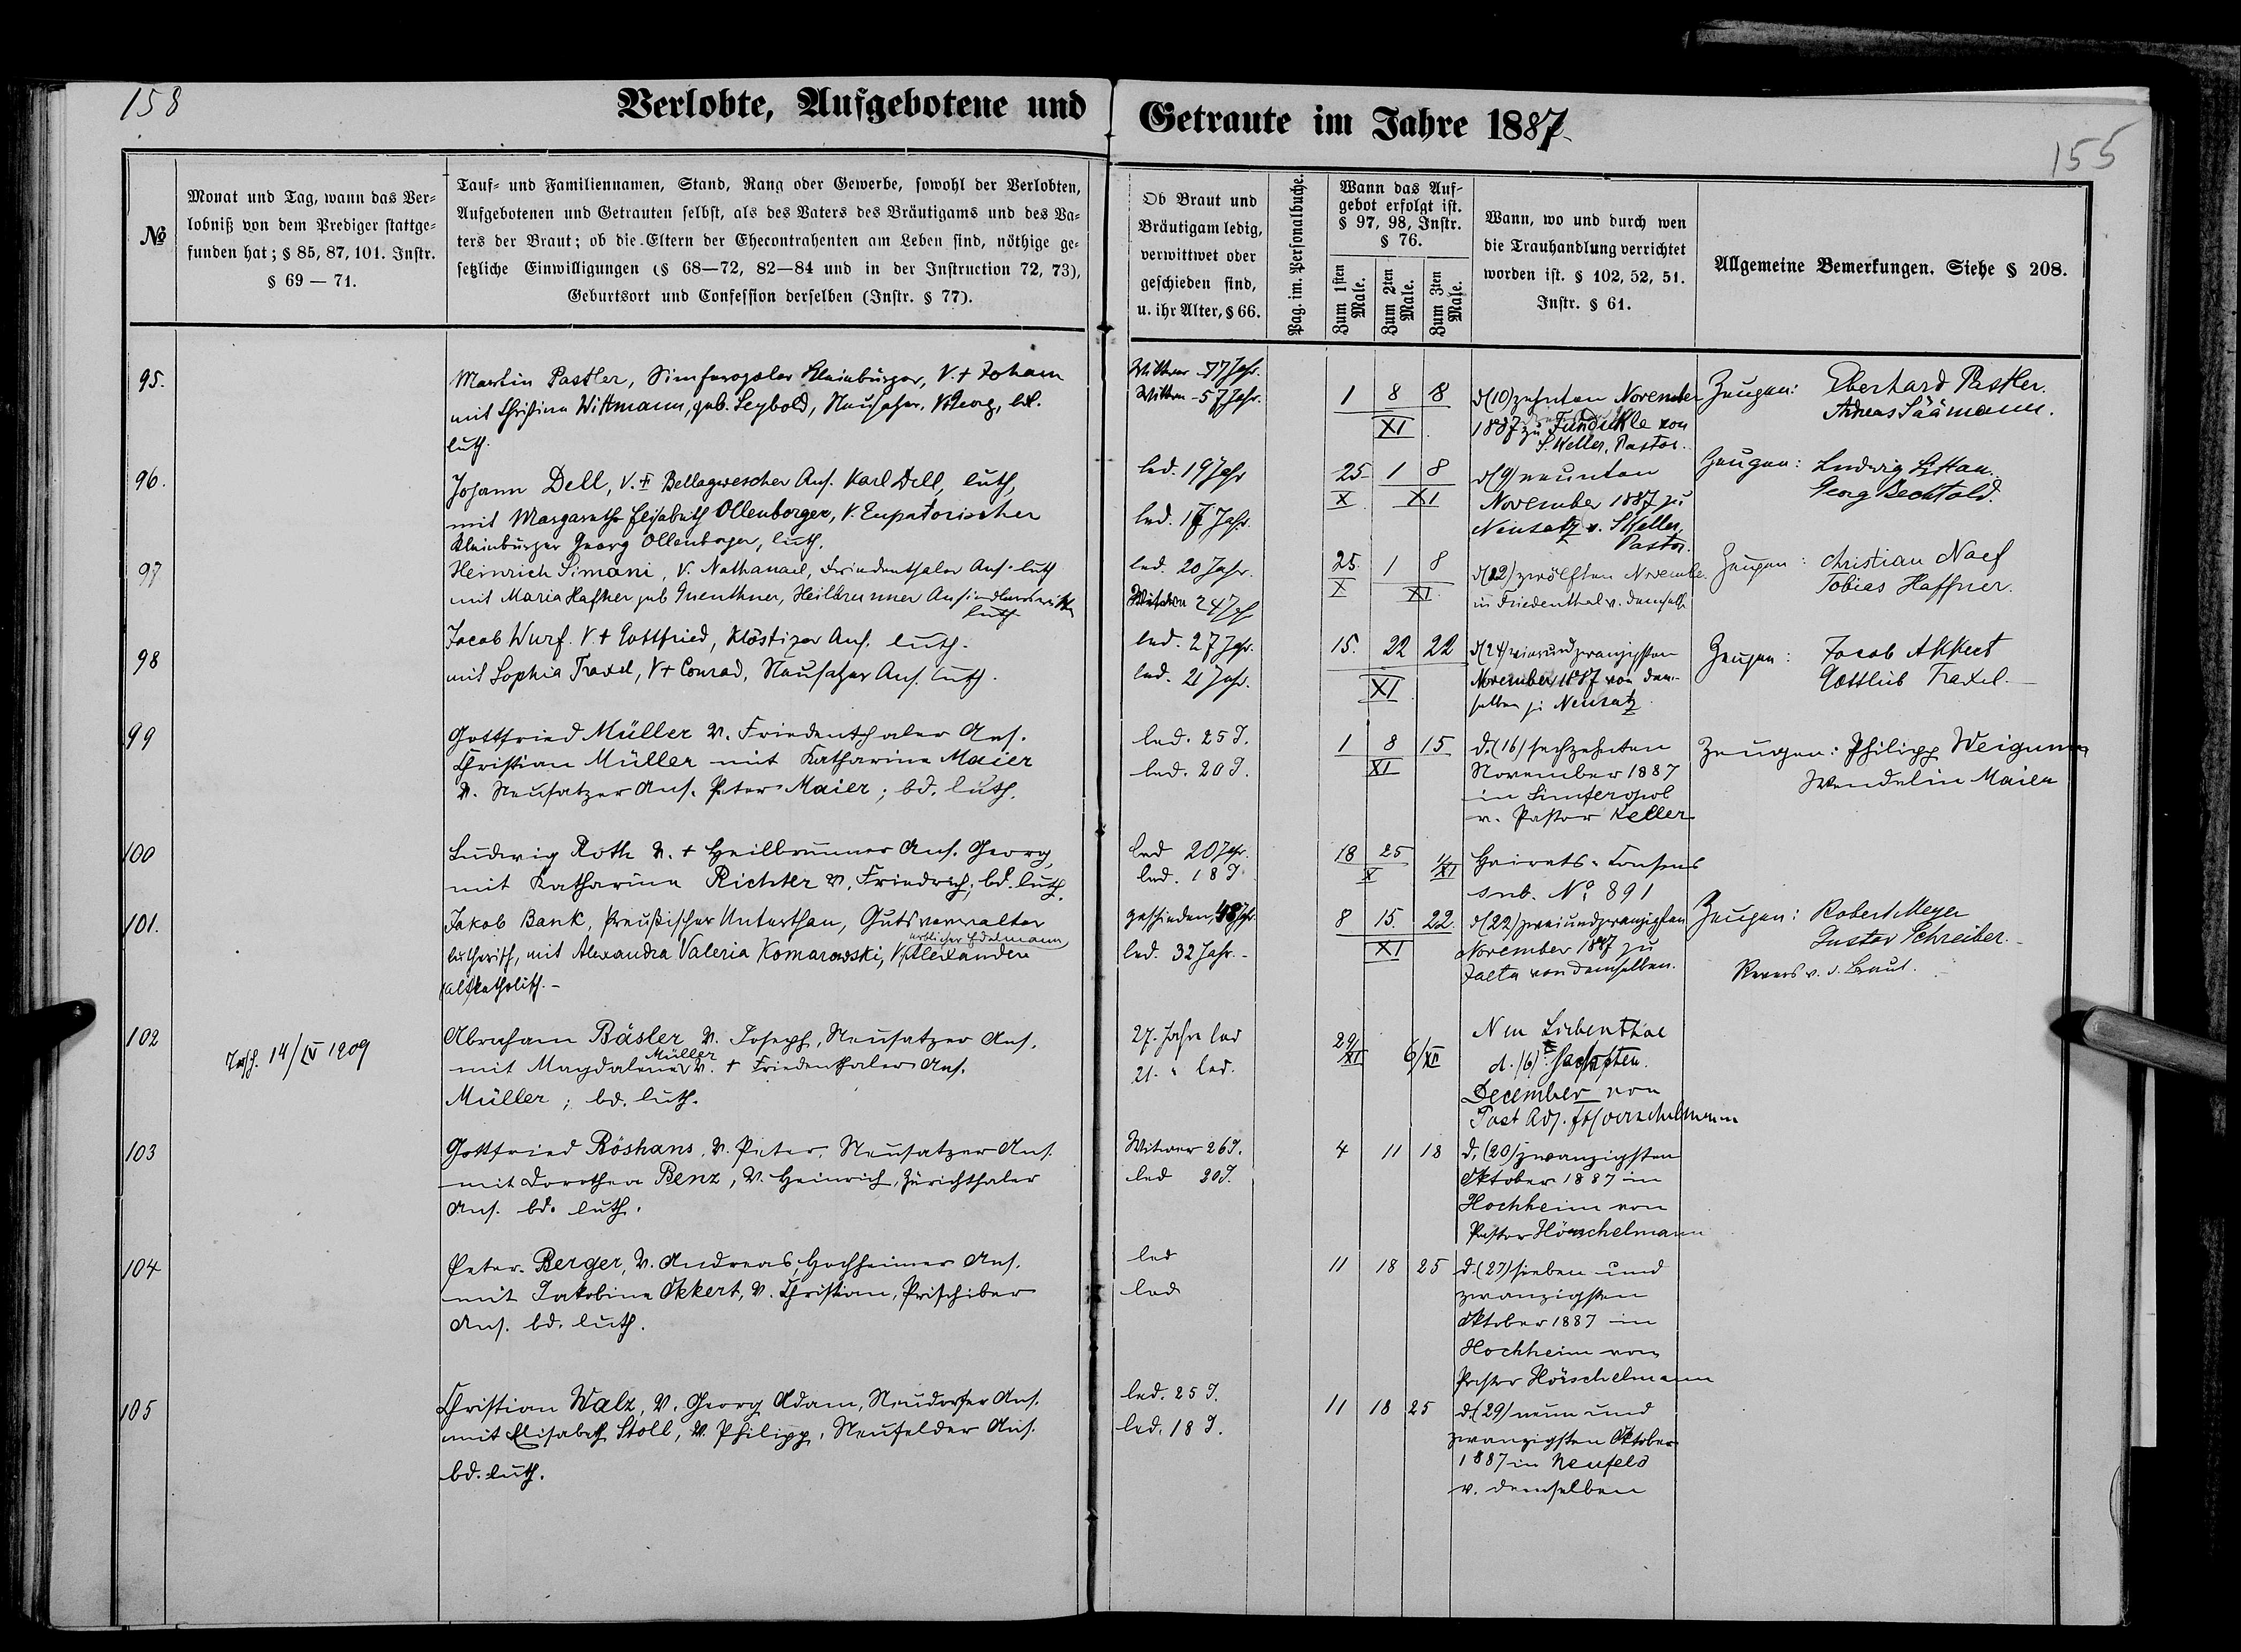 158
Verlobte, Aufgebotene und Getraute im Jahre 1887
155
№
Monat und Tag, wann das Ver-
lobniß von dem Prediger stattge-
funden hat; § 85, 87, 101. Instr.
§ 69 — 71.
Tauf- und Familiennamen, Stand, Rang oder Gewerbe, sowohl der Verlobten,
Aufgebotenen und Getrauten selbst, als des Vaters des Bräutigams und des Va-
ters der Braut; ob die Eltern der Ehecontrahenten am Leben sind, nöthige ge-
setzliche Einwilligungen (§ 68—72, 82—84 und in der Instruction 72, 73),
Geburtsort und Confession derselben (Instr. § 77).
Ob Braut und
Bräutigam ledig,
verwittwet oder
geschieden sind,
u. ihr Alter, § 66.
Pag. im. Personalbuche.
Wann das Auf-
gebot erfolgt ist.
§ 97, 98, Instr.
§ 76.
Zum 1sten
Male.
Zum 2ten
Male.
Zum 3ten
Male.
Wann, wo und durch wen
die Trauhandlung verrichtet
worden ist. § 102, 52, 51.
Instr. § 61.
Allgemeine Bemerkungen. Siehe § 208.
95.
Martin Pastler, Simferopoler Kleinbürger, V. + Johann
mit Christina Wittmann, geb. Seybold, Neusatzer, V. Georg, bd.
luth.
Wittwer - 77 Jahr.
Wittwe - 57 Jahr.
1 8 8
XI
d (10) zehnten November
1887 zu Fundukle von
S. Keller, Pastor.
Zeugen: Eberhard Pastler.
Andreas Säämann.
96.
Johann Dell, V. + Bellagwescher Ans. Karl Dell, luth,
mit Margaretha Elisabeth Ollenborger, V. Eupatorischer
Kleinbürger Georg Ollenborger, luth.
led. 19 Jahr
led. 17 Jahr.
25 1 8
X XI
d (9) neunten
November 1887 zu
Neusatz v. S Keller,
Pastor.
Zeugen: Ludwig
Georg Bechtold.
97
Heinrich Simani, V. Nathanael, Friedenthaler Ans. luth
mit Maria Hafner geb Guenthner, Heilbrunner
luth
led. 20 Jahr.
24 J
25. 1 8
X XI.
d (12) zwölften November
in Friedenthal v. demselb.
Zeugen: Christian Naef
Tobias Haffner.
98
Jacob Wurf. V. + Gottfried, Ans. luth.
mit Sophia Traxel, V + Conrad, Neusatzer Ans. luth.
led. 27 Jahr.
led. 21 Jahr.
15. 22 22
XI
d (24) vierundzwanzigsten
November 1887 von dem-
selben zu Neusatz
Zeugen: Jacob Akkert
Gottlieb Traxel.
99
Gottfried Müller V. Friedenthaler Ans.
Christian Müller mit Katharina Maier
V. Neusatzer Ans. Peter Maier; bd. luth.
led. 25 J.
led. 20 J.
1 8 15
XI
d. (16) sechzehnten
November 1887
in Simferopol
v. Pastor Keller
Zeugen: Philipp Weigum
Wendelin Maier
100
Ludwig Roth V. + Heilbrunner Ans. Georg,
mit Katharina Richter V. Friedrich; bd. luth.
led 20 Jahr.
led. 18 J.
18 25 1/XI
X
Heirats-Consens
sub. No 891
101.
Jakob Bank, Preußischer Unterthan, Gutsverwalter
erblicher Edelmann
lutherisch, mit Alexandra Valeria Komarowski, V. Alexander
(alt)katholisch. -
geschieden, 48 Jahr.
led. 32 Jahr. -
8 15. 22.
XI
d (22) zweiundzwanzigsten
November 1887 zu
Jalta von demselben.
Zeugen: Robert Meyer
Gustav Schreiber. -
Revers v. d. Braut.
102
14/IV 1909
Abraham Bäsler V. Joseph, Neusatzer Ans.
Müller
mit Magdalena V. + Friedenthaler Ans.
Müller; bd. luth.
27. Jahre led
21. " led.
29/XI 6/XII
Neu Liebenthal
d. (6) sechsten
December von
Past Adj. Hörschelmann
103
Gottfried Röshans, V. Peter, Neusatzer Ans.
mit Dorothea Benz, V. Heinrich, Zürichthaler
Ans. bd. luth.
Witwer 26 J.
led 20 J.
4 11 18
d. (20) zwanzigsten
Oktober 1887 in
Hochheim von
Pastor Hörschelmann
104
Peter Berger, V. Andreas, Hochheimer Ans.
mit Jakobine Okkert, V. Christian, Prischiber
Ans. bd. luth.
led
led
11 18 25
d. (27) sieben und
zwanzigsten
Oktober 1887 in
Hochheim von
Pastor Hörschelmann
105
Christian Walz, V. Georg Adam, Neudorfer Ans.
mit Elisabeth Stoll, V. Philipp, Neufelder Ans.
bd. luth.
led. 25 J.
led. 18 J.
11 18 25
d. (29) neun und
zwanzigsten Oktober
1887 in Neufeld
v. demselben